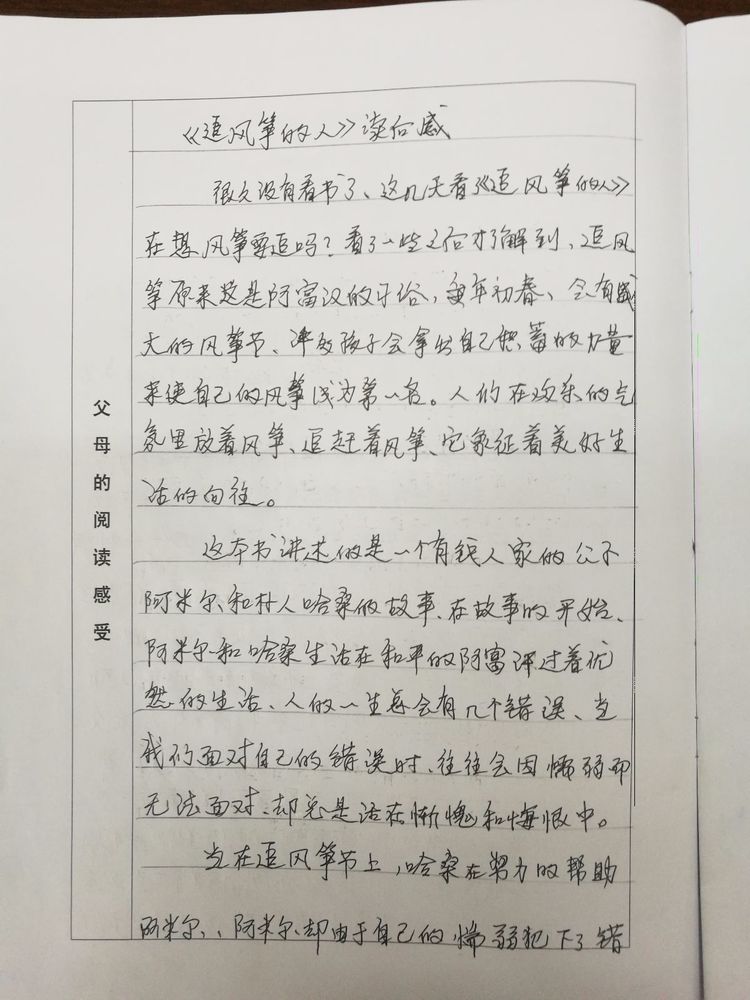 《追风筝的人》读后感
很久没有看书了、这几天看《追风筝的人》
在想风筝要追吗？看了一些之后才了解到、追风
筝原来是阿富汉的习俗，每年初春、会有盛
大的风筝节、许多孩子会拿出自己积蓄的力量
来使自己的风筝成为第一名。人们在欢乐的气
氛里放着风筝、追赶着风筝、它象征着美好生
活的向往。
这本书讲述的是一个有钱人家的公子
阿米尔和仆人哈桑的故事、在故事的开始、
阿米尔和哈桑生活在和平的阿富汗过着优
悠的生活、人的一生总会有几个错误、当
我们面对自己的错误时、往往会因懦弱而
无法面对、却总是活在惭愧和悔恨中。
当在追风筝节上，哈桑在努力的帮助
阿米尔、，阿米尔却由于自己的懦弱犯下了错
父母的阅读感受